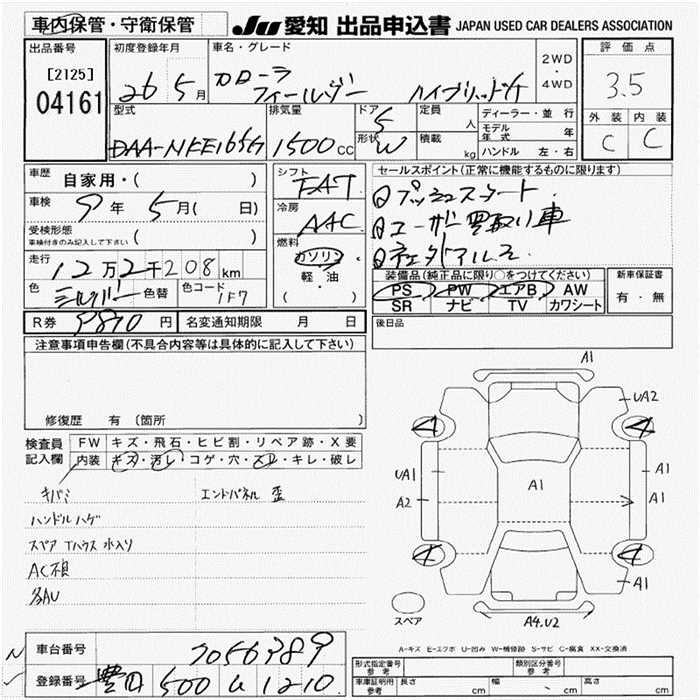 車内保管・守衛保管
JU 愛知 出品申込書 JAPAN USED CAR DEALERS ASSOCIATION
出品番号
[2125]
04161
初度登録年月
26 5月
車名・グレード
カローラ
フィールダー ハイブリッドG
2WD
・
4WD
評価点
3.5
外装 内装
C C
型式
DAA-NKE165G
排気量
1500cc
ドア
5
形状
W
定員
人
積載
kg
ディーラー・並行
モデル年式 年
ハンドル 左・右
車歴
自家用・( )
車検
9年 5月( 日)
受検形態
車検付きのみ記入して下さい ( )
走行
12万2千208km
色
シルバー 色替
色コード
1F7
シフト
FAT
冷房
AAC
燃料
ガソリン
軽・油
( )
セールスポイント(正常に機能するものに限ります)
プッシュスタート
ユーザー買取り車
社外アルミ
装備品(純正品に限り○をつけてください)
PS PW エアB AW
SR ナビ TV カワシート
新車保証書
有・無
R券 9870円 名変通知期限 月 日
後日品
注意事項申告欄(不具合内容等は具体的に記入して下さい)
修復歴 有(箇所 )
検査員記入欄
FW キズ・飛石・ヒビ割・リペア跡・X要
内装 キズ・汚レ・コゲ・穴・スレ・キレ・破レ
キバミ エンドパネル 歪
ハンドルハゲ
スペアTハウス 水入り
AC不良
多AU
A1
UA2
4 4
UA1 A1
A2 A1 A1
4 4
A1
スペア
A4.U2
A-キズ E-エクボ U-凹み W-補修跡 S-サビ C-腐食 XX-交換済
N 車台番号 7056989
登録番号 豊田 500 む 1210
形式指定番号 参考 類別区分番号 参考
車庫証明用 参考 長さ cm 幅 cm 高さ cm